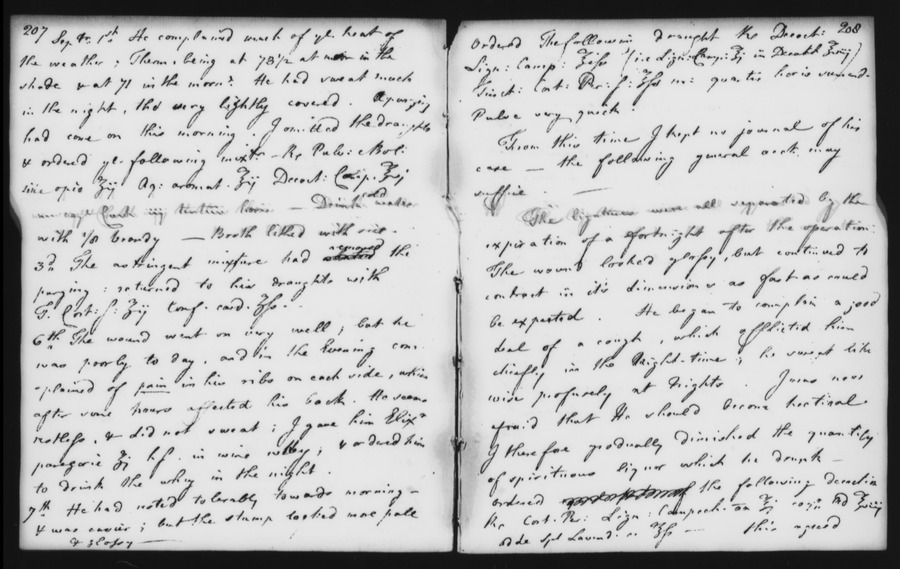 207
Sep tr. 1st He complained much of ye. heat of
the weather; Therm. being at 78 1/2 at noon in the
shade & at 71 in the morng. He had sweat much
in the night, tho' very lightly covered. A purging
had come on this morning. I omitted the draughts
& ordered ye. following mixt. Rx Pulv: e Bol:
sine opio ʒij Aq: aromat. ʒij Decoct:
Drink cold water
with 1/8 brandy — Broth lithed with rice.
3d. The astringent mixture had removed the
purging: returned to his draughts with
T. Cort: ʒij Conf. card. ʒſs.
6th The wound went on very well; but he
was poorly to day, and in the Evening com-
-plained of pain in his ribs on each side, which
after some hours affected his back. He seems
restless, & did not sweat; I gave him Elixr.
paregoric ʒj in wine whey; & ordered him
to drink the whey in the night.
7th He had rested tolerably towards morning —
& was easier; but the stump looked more pale
& glossy —
208
Ordered The following draught Rx Decoct:
Lign: Camp:
Tinct: Cort: Per: quartis horis sumend.
Pulse very quick.
From this time I kept no journal of his
case — the following general acct. may
suffice. —
The ligatures were all separated by the
expiration of a fortnight after the operation.
The wound looked glassy, but continued to
contract in it's dimensions as fast as could
be expected. He began to complain a good
deal of a cough, which afflicted him
chiefly in the Night-time; he sweat like
wise profusely at Nights. I was now
afraid that He should become hectical
I therefore gradually diminished the quantity
of spirituous liquor which he drank —
ordered the following decoction
Rx Cort. Per: Lign: Campech. ana
Lavend. — this agreed